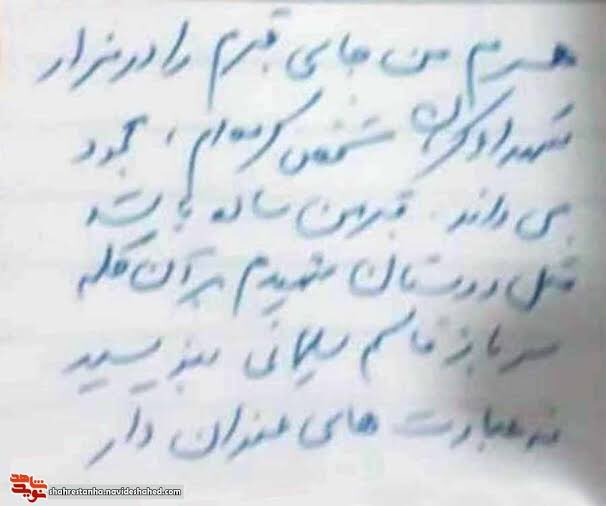 همسرم من جای قبرم را در مزار
شهداء کرمان مشخص کرده‌ام، محمود
می داند. قبر من ساده باشد
مثل دوستان شهیدم بر آن کلمه
سرباز قاسم سلیمانی بنویسید
نه عبارت های عنوان دار
شاهد
نوید
shahrestanha.navideshahed.com